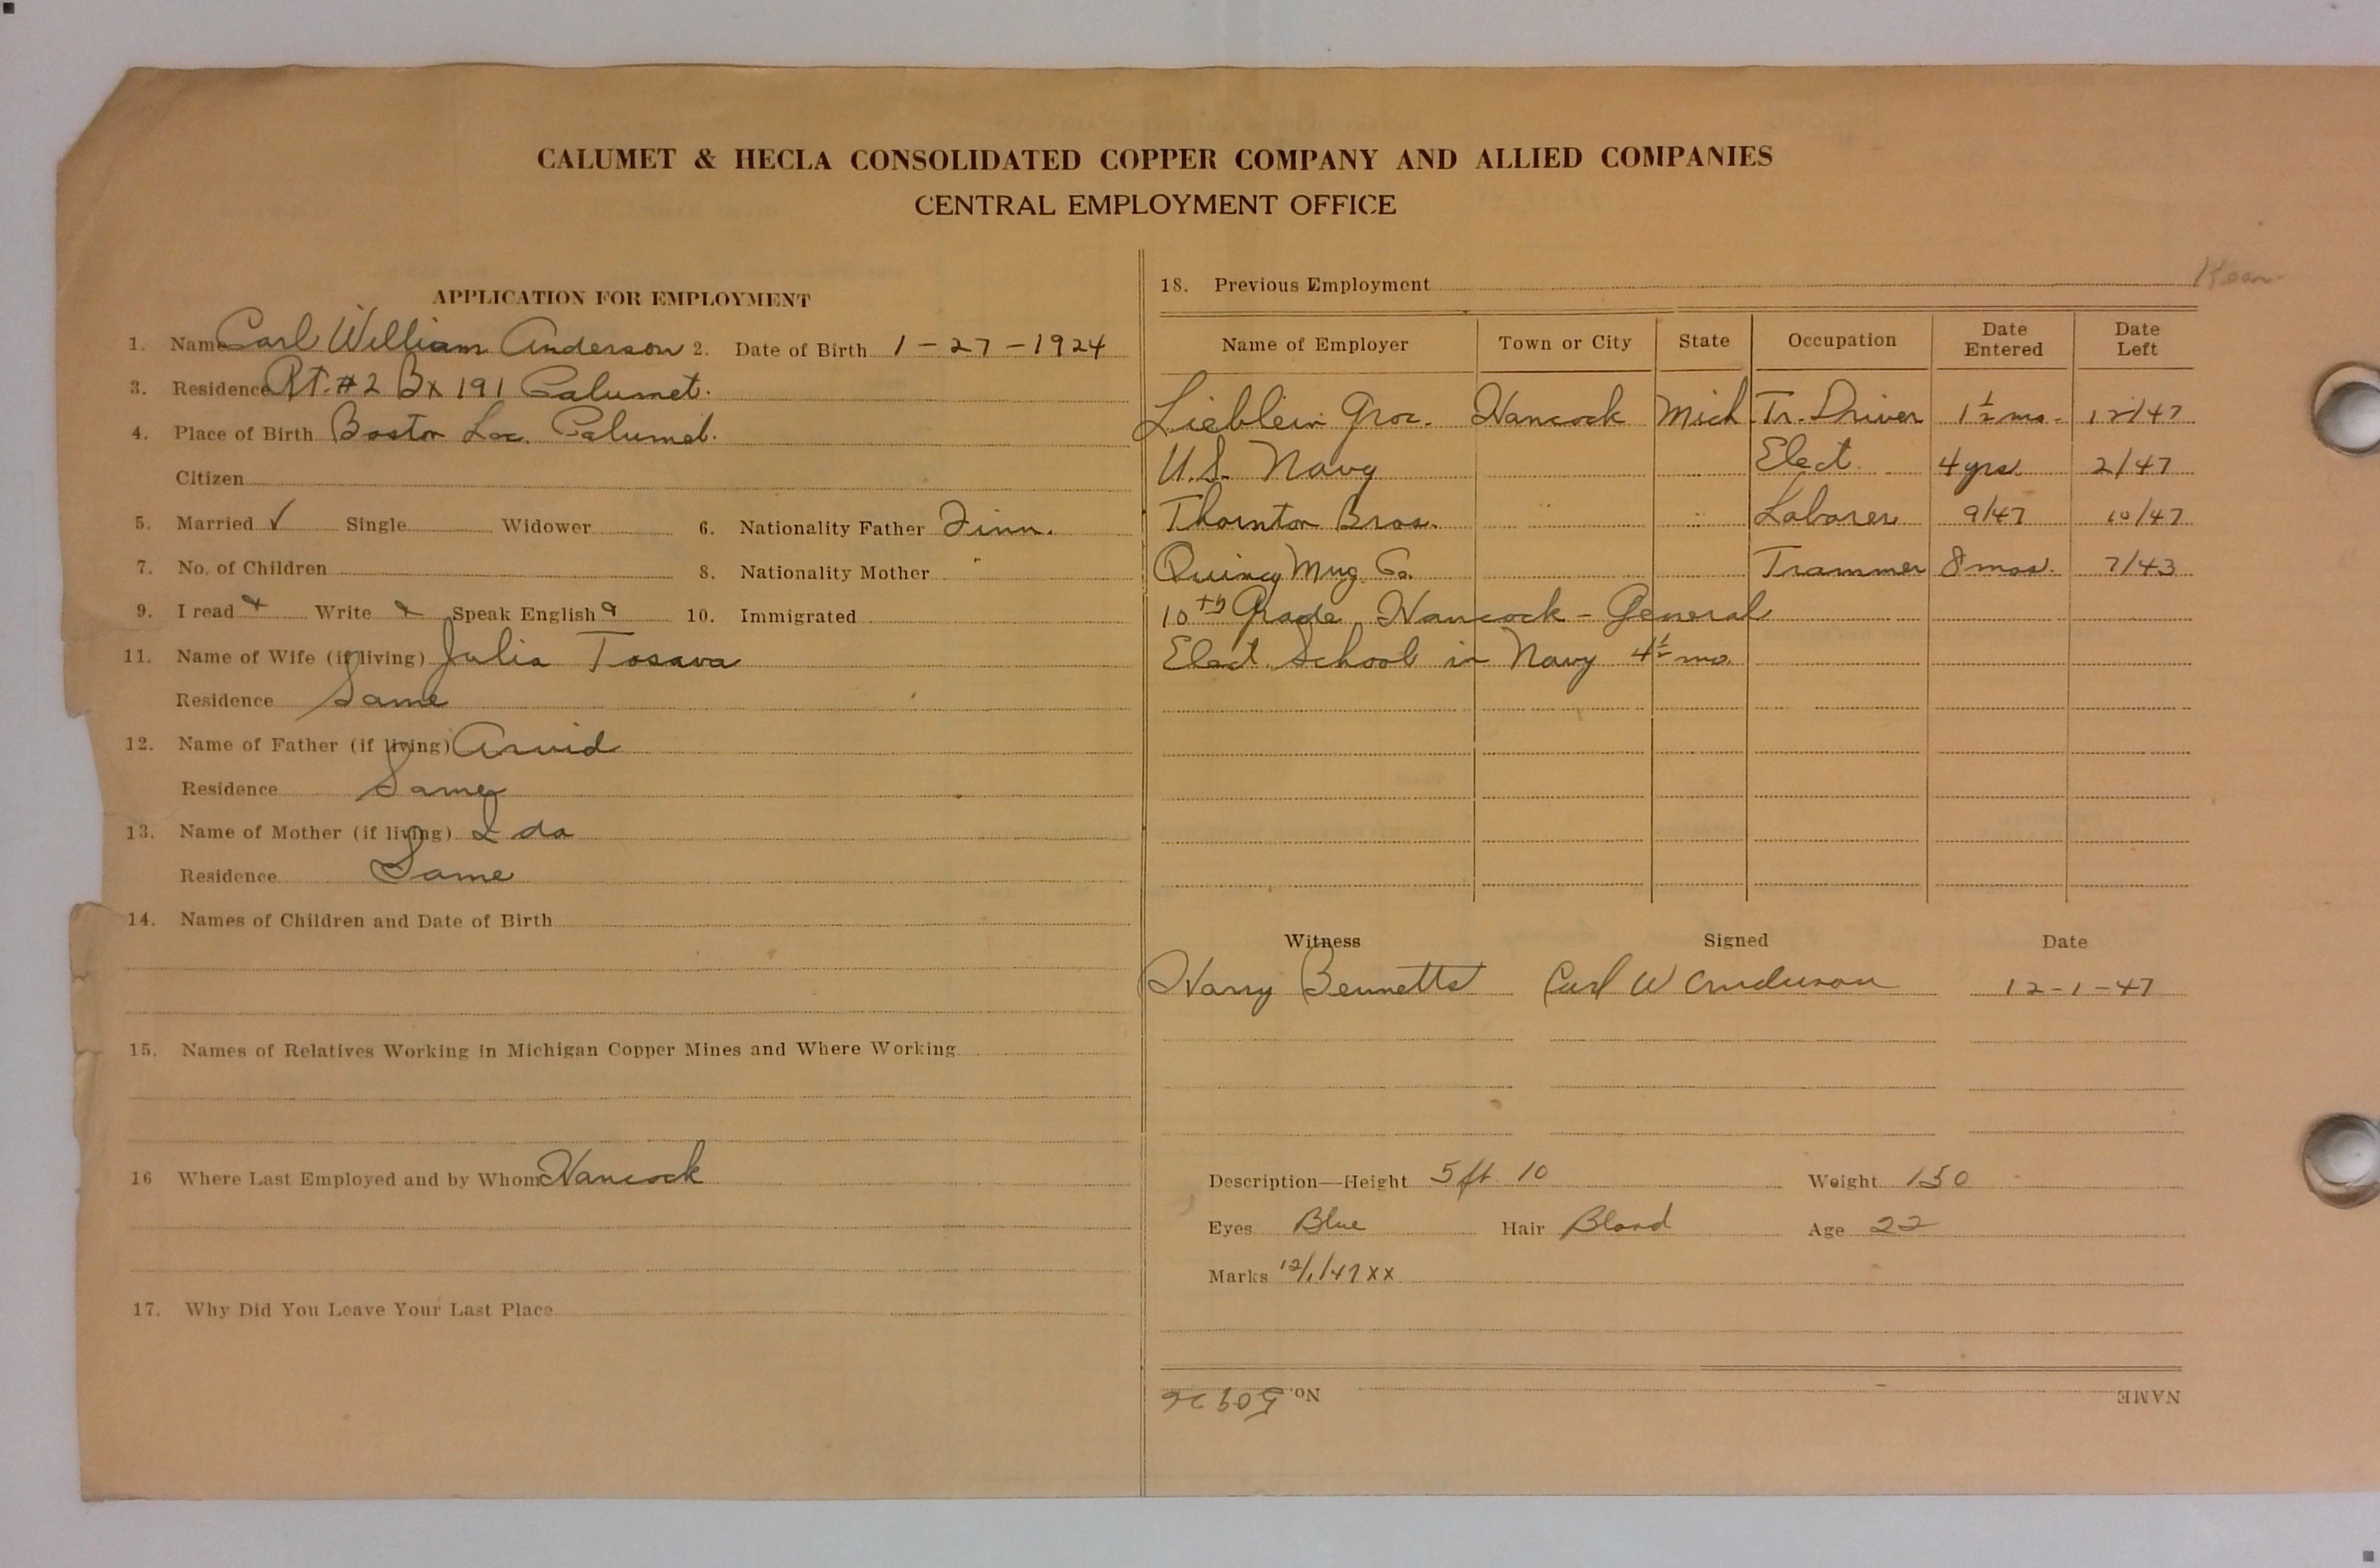 CALUMET & HECLA CONSOLIDATED COPPER COMPANY AND ALLIED COMPANIES
CENTRAL EMPLOYMENT OFFICE
APPLICATION FOR EMPLOYMENT
1. Name Carl William Anderson 2. Date of Birth 1-27-1924
3. Residence Rt. #2 Bx 191 Calumet.
4. Place of Birth Boston Loc. Calumet.
Citizen
5. Married ✓ Single Widower 6. Nationality Father Finn.
7. No. of Children 8. Nationality Mother "
9. I read Write Speak English 10. Immigrated
11. Name of Wife (if living) Julia Tosava
Residence Same
12. Name of Father (if living) Arvid
Residence Same
13. Name of Mother (if living) Ida
Residence Same
14. Names of Children and Date of Birth
15. Names of Relatives Working in Michigan Copper Mines and Where Working
16 Where Last Employed and by Whom Hancock
17. Why Did You Leave Your Last Place
18. Previous Employment
Name of Employer Town or City State Occupation Date Entered Date Left
Lieblein Groc. Hancock Mich. Tr. Driver 1 1/2 mo. 12/47
U.S. Navy Elect. 4 yrs. 2/47
Thornton Bros. Laborer 9/47 10/47
Quincy Mng. Co. Trammer 8 mos. 7/43
10th Grade Hancock - General
Elect. School in Navy 4 1/2 mo.
Witness Signed Date
Harry Bennetts Carl W Anderson 12-1-47
Description—Height 5 ft 10 Weight 150
Eyes Blue Hair Blond Age 22
Marks 12/1/47 XX
No. 50926 NAME